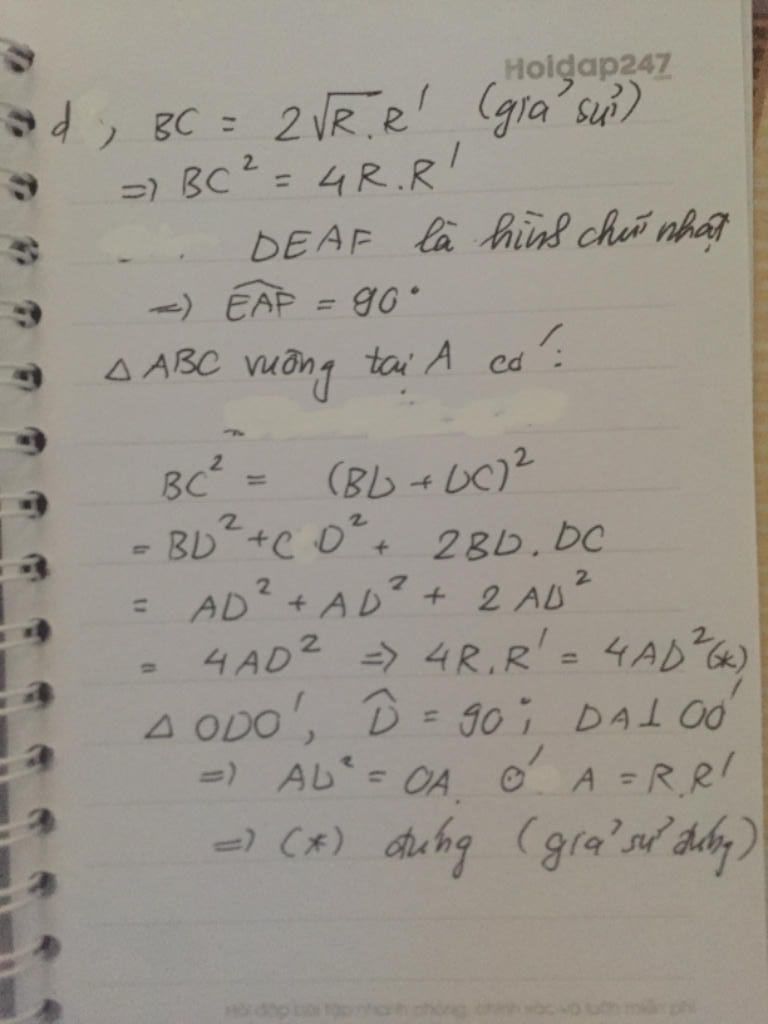 Hoidap247
d, BC = 2√R.R' (giả sử)
=> BC² = 4R.R'
DEAF là hình chữ nhật
=> EAF = 90°
Δ ABC vuông tại A có:
BC² = (BD + DC)²
= BD² + CD² + 2BD.DC
= AD² + AD² + 2AD²
= 4AD² => 4R.R' = 4AD² (*)
Δ ODO', D̂ = 90°; DA⊥OO'
=> AD² = OA. O'A = R.R'
=> (*) đúng (giả sử đúng)
Hỏi đáp bài tập nhanh chóng, chính xác và luôn miễn phí